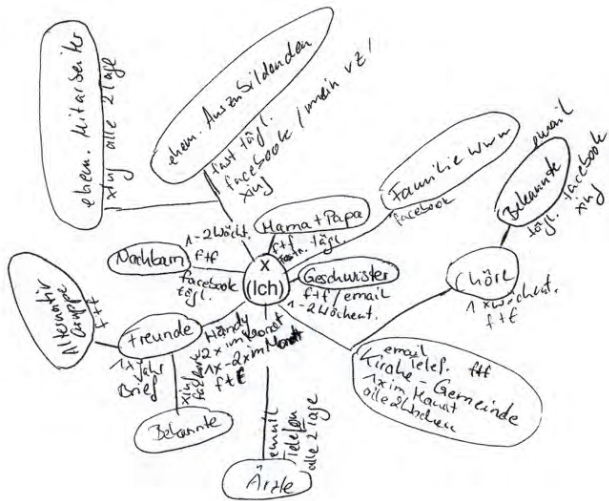 ehem. Mitarbeiter
xing alle 2 Tage
ehem. Auszubildenden
fast tägl.
facebook / mein vz /
xing
Familie www
facebook
Bekannte
email
tägl. facebook
xing
Chöre
1x wöchent.
f+f
Mama + Papa
f+f
tägl.
Nachbarn
1-2 wöcht.
f+f
facebook
tägl.
X
(Ich)
Geschwister
f+f / email
1-2 wöchent.
Alternativ
Gruppe
f+f
Freunde
1x Jahr
Brief
Handy
2x im Monat
1x-2x im Monat
f+f
Bekannte
xing
facebook
email
Telefon
alle 2 Tage
Ärzte
email
Telef. f+f
Kirche-Gemeinde
1x im Monat
alle 2 Wochen